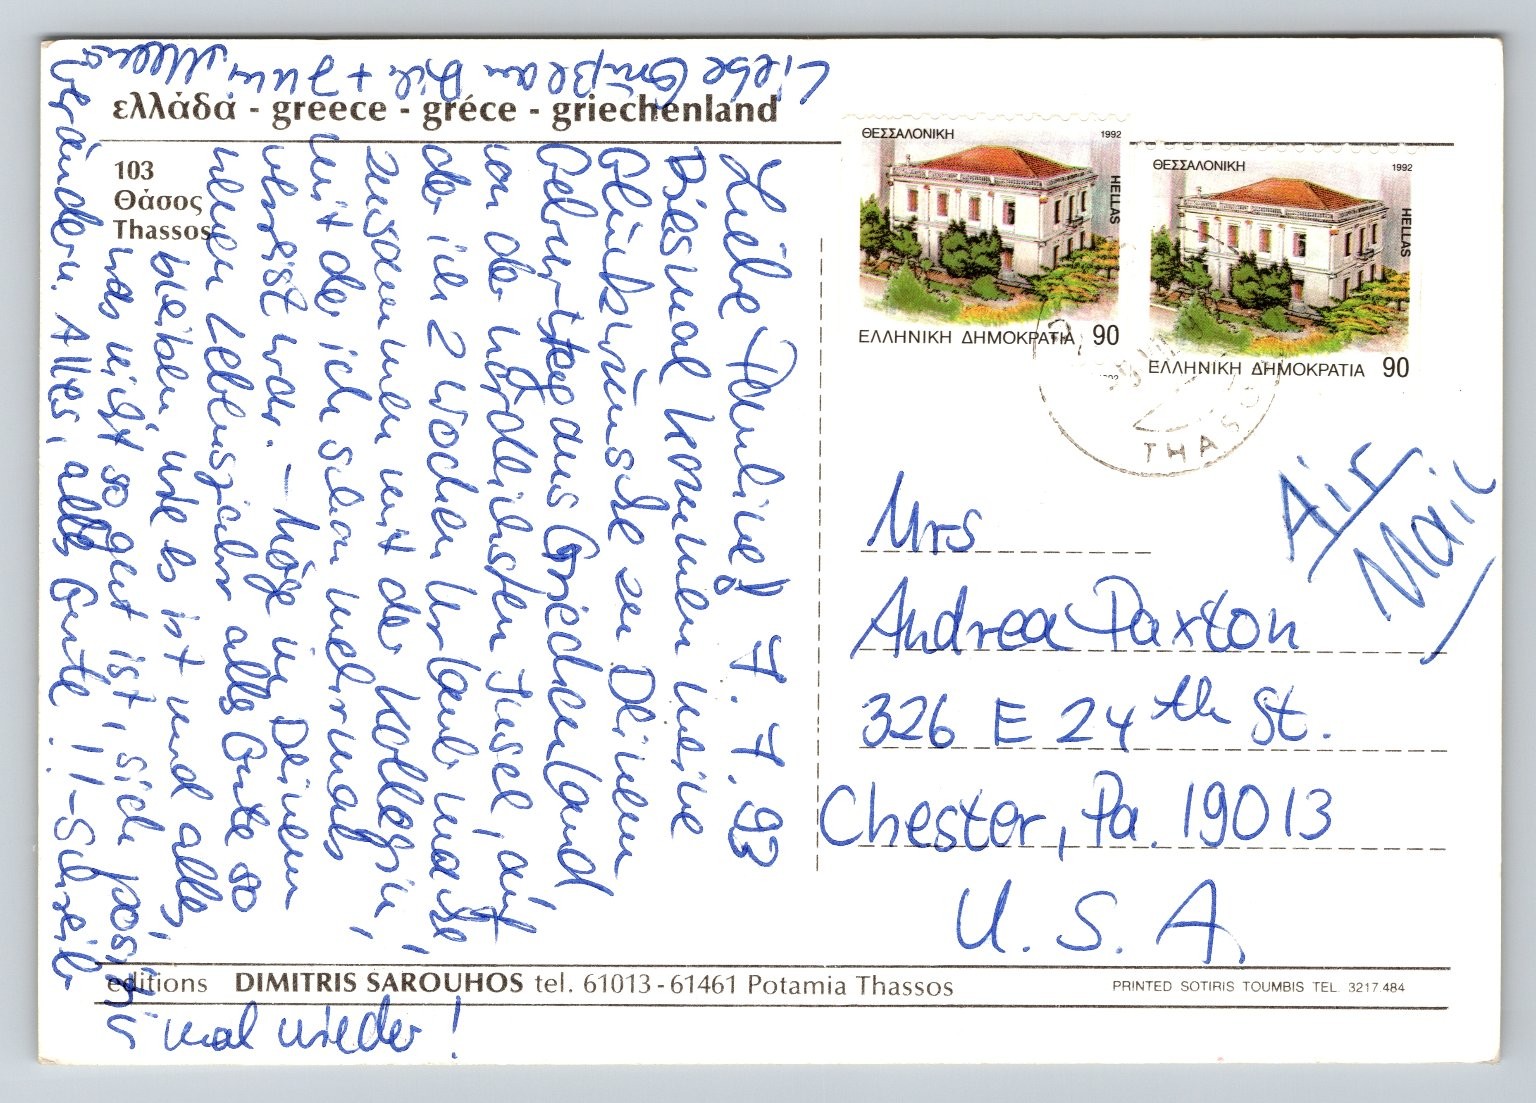 ελλάδα - greece - gréce - griechenland
103
Θάσος
Thassos
ΘΕΣΣΑΛΟΝΙΚΗ 1992
HELLAS
ΕΛΛΗΝΙΚΗ ΔΗΜΟΚΡΑΤΙΑ 90
ΘΕΣΣΑΛΟΝΙΚΗ 1992
HELLAS
ΕΛΛΗΝΙΚΗ ΔΗΜΟΚΡΑΤΙΑ 90
THASO
Air
Mail
Mrs
Andrea Paxton
326 E 24th St.
Chester, Pa. 19013
U. S. A
Liebe Pauline! 7. 7. 93
Diesmal kommen meine
Glückwünsche zu Deinem
Geburtstag aus Griechenland,
von der nördlichsten Insel, auf
der ich 2 Wochen Urlaub mache,
zusammen mit der Kollegin,
mit der ich schon mehrmals
verreist war. – Möge in Deinem
neuen Lebensjahr alles Gute so
bleiben, wie es ist und alles,
was nicht so gut ist, sich positiv
verändern. Alles, alles Gute!!! – Schreib
mal wieder!
Liebe Grüße an Dich +
editions DIMITRIS SAROUHOS tel. 61013-61461 Potamia Thassos
PRINTED SOTIRIS TOUMBIS TEL. 3217.484